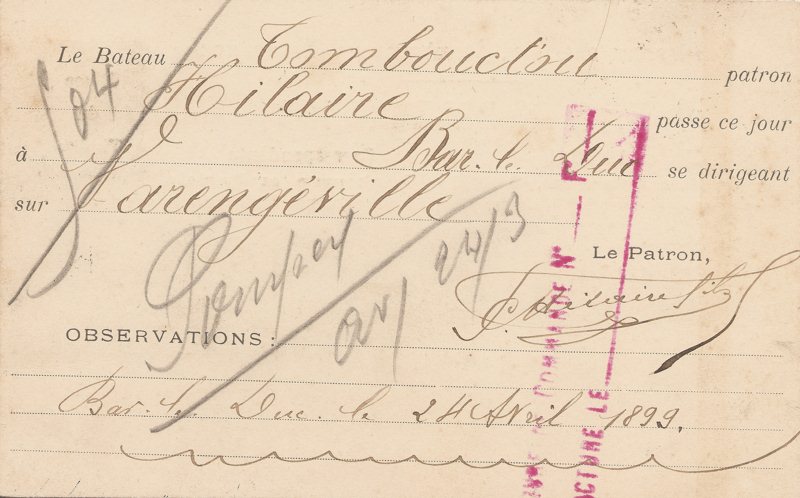 Le Bateau Tombouctou patron
Hilaire passe ce jour
à Bar-le Duc se dirigeant
sur Varengéville
Le Patron,
Hilaire fils
OBSERVATIONS:
Bar-le Duc le 24 Avril 1899.
504
Pompey
24/3
COMMANDE N°
LE